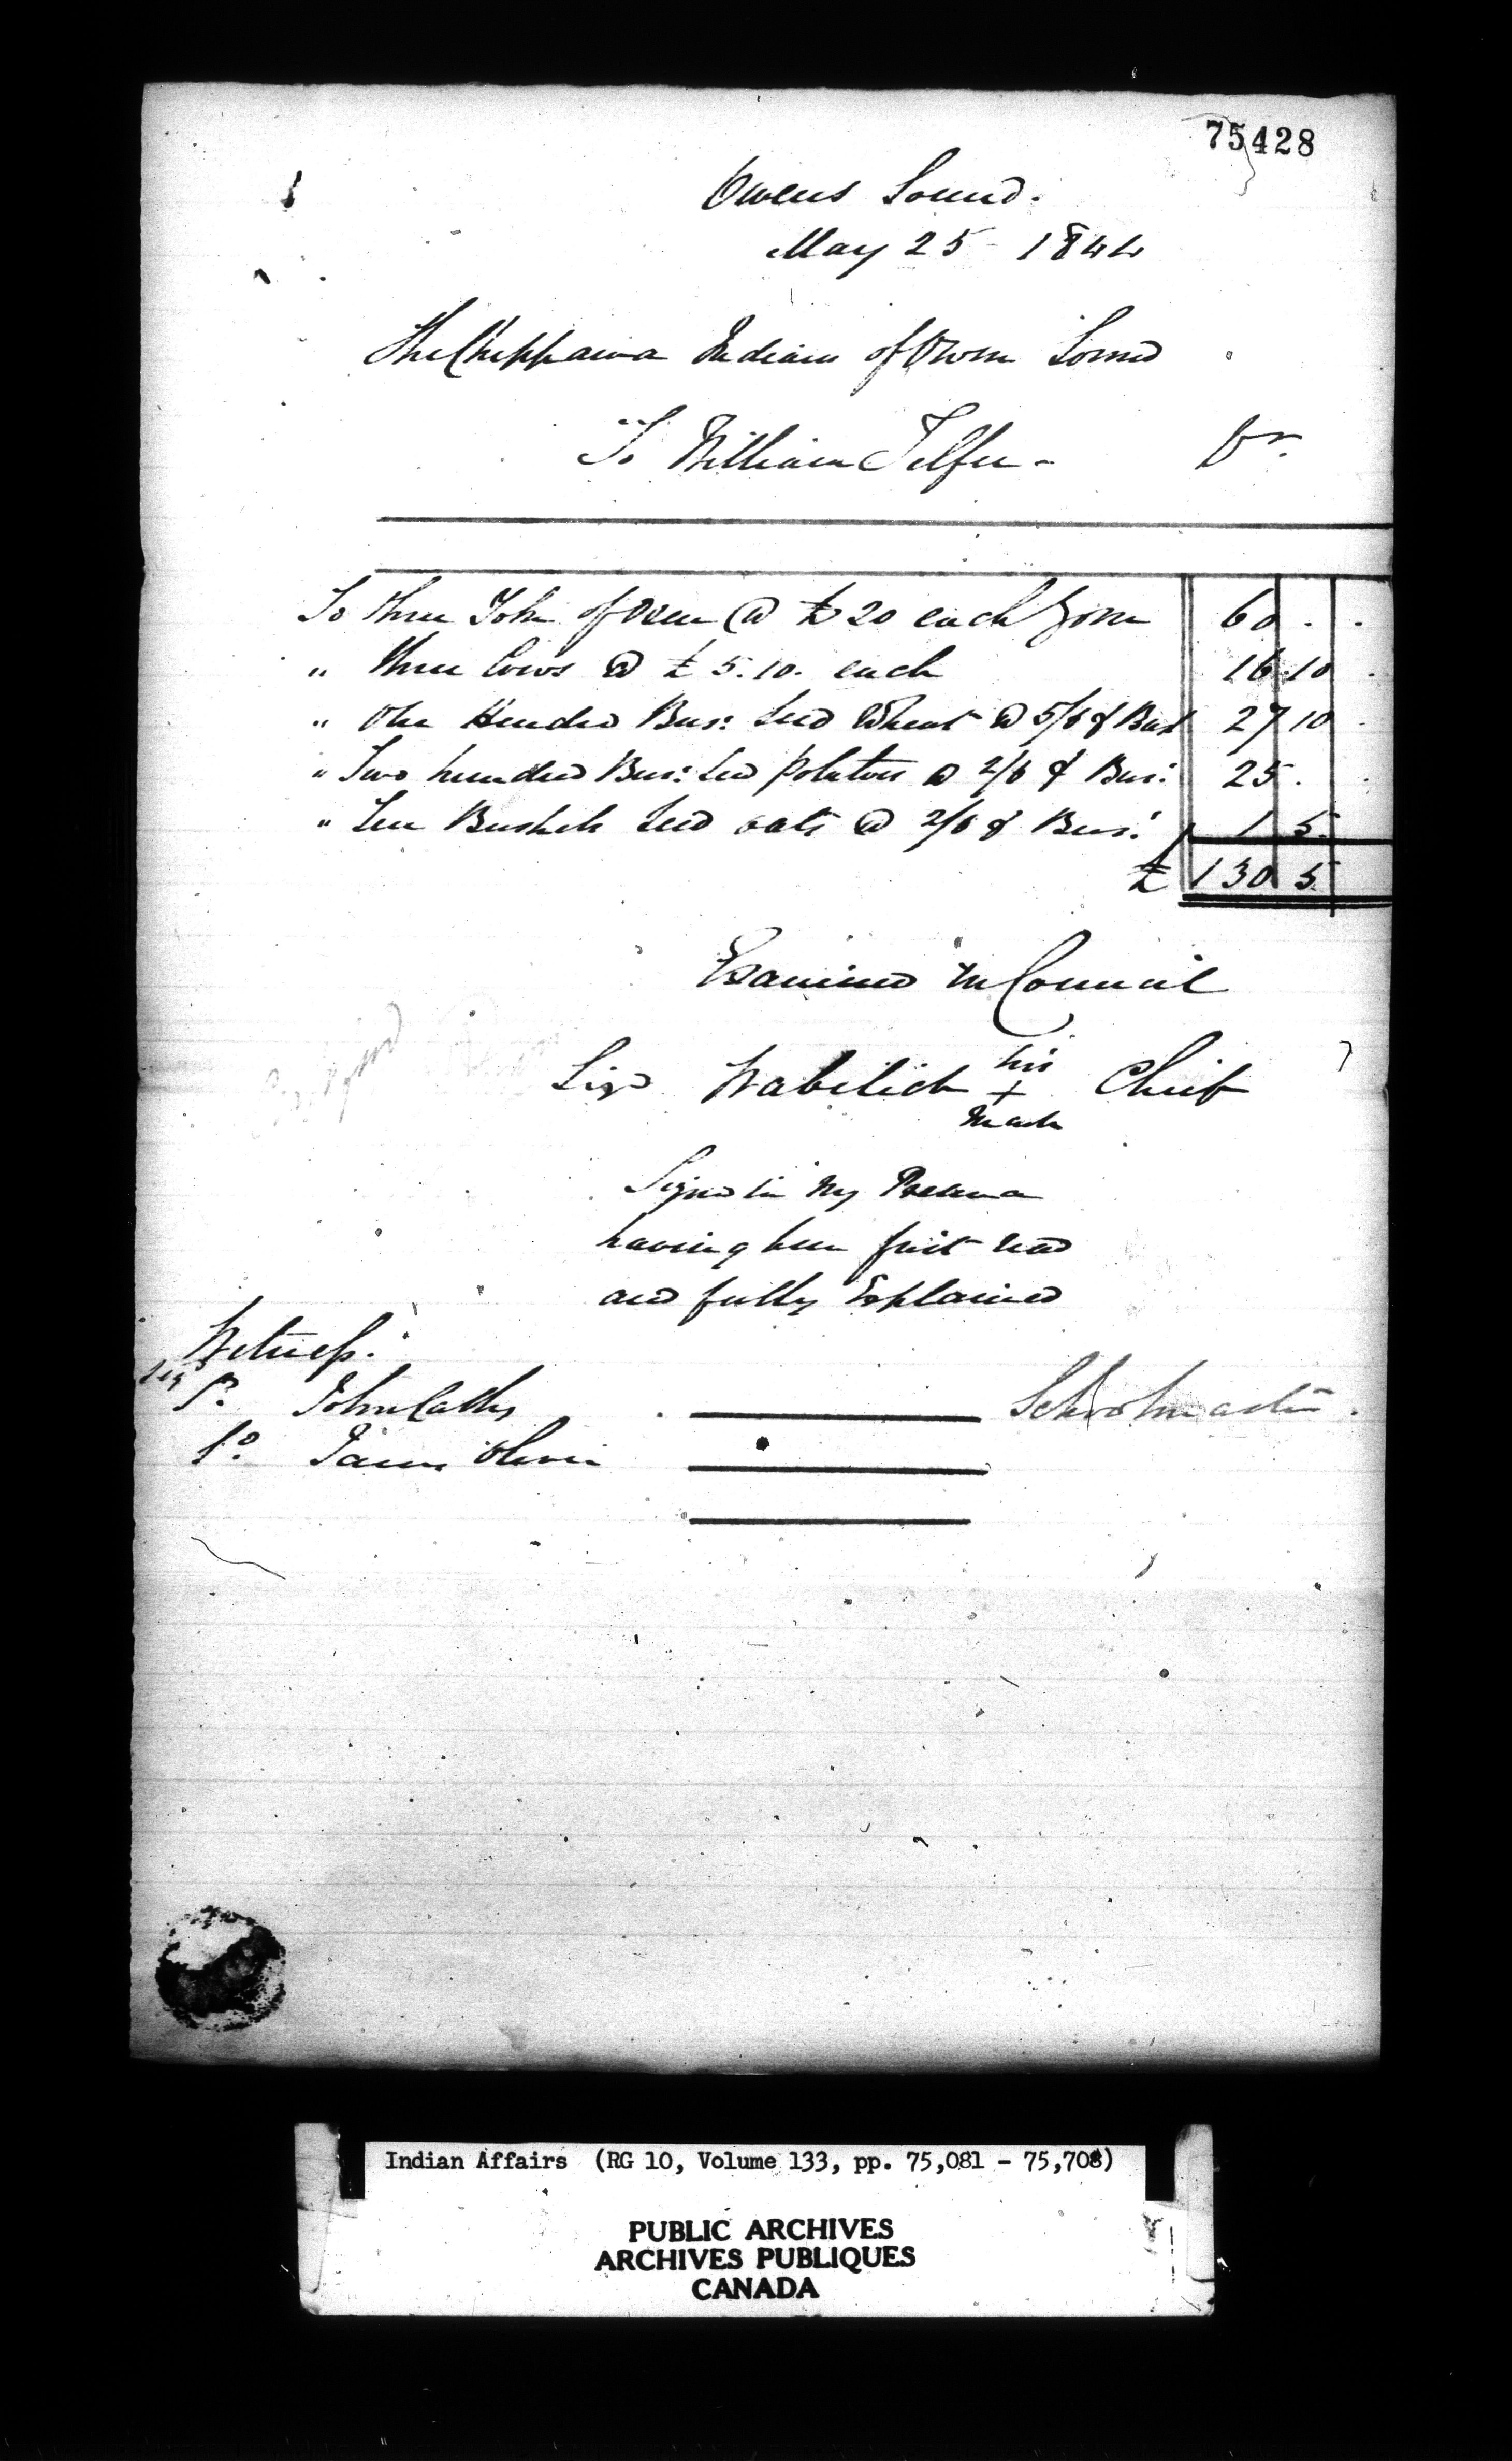 75428
Owens Sound.
May 25 - 1844
The Chippawa Indians of Owen Sound
To William Telfer - Dr.
To three Yoke of Oxen @ £20 each Yoke 60 . .
" three Cows @ £ 5.10. each 16 10 .
" One Hundred Bus: Seed Wheat @ 5/6 ⅌ Bus 27 10 .
" Two hundred Bus: Seed potatoes @ 2/6 ⅌ Bus: 25 . .
" Ten Bushels Seed oats @ 2/6 ⅌ Bus: 1 5.
£ 130 5
Examined in Council
Sigd Wabetick his + mark Chief
Signed in my Presence
having been first read
and fully Explained
Witness.
Sigd
Do. John Cathey Schoolmaster.
Do. James
Indian Affairs (RG 10, Volume 133, pp. 75,081 - 75,708)
PUBLIC ARCHIVES
ARCHIVES PUBLIQUES
CANADA